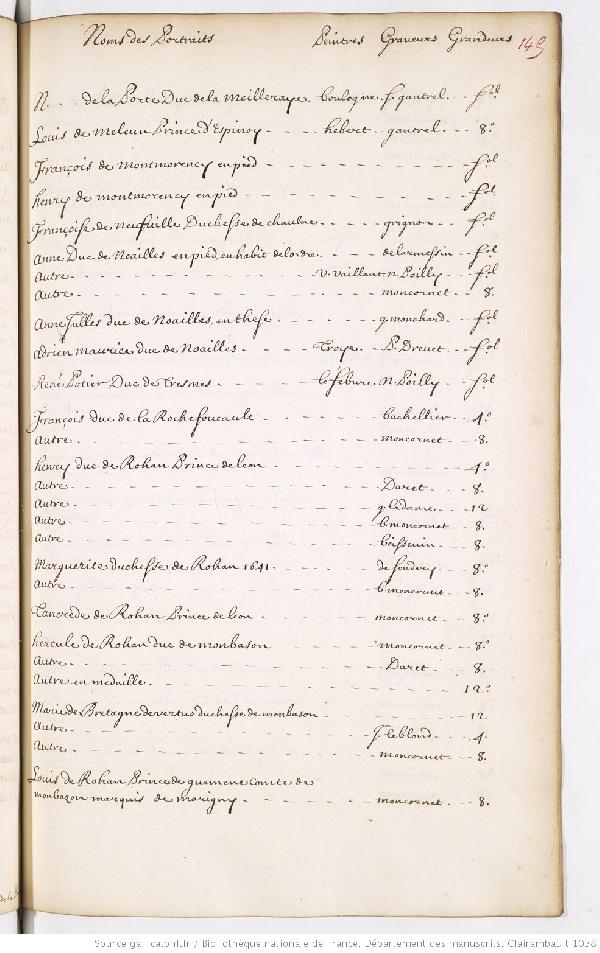 Noms des Portraits Peintres Graveurs Grandeurs 149
N. . . de la Porte Duc de la Meilleraye boulogne. f. gantrel. fol
Louis de Meleun Prince d'Espinoy hebert gantrel. 8.o
François de Montmorency en pied fol
henry de montmorency en pied fol
Françoise de neufville Duchesse de chaulne grignon fol
Anne Duc de Noailles en pied, en habit de lordre. delarmessin fol
Autre V. vaillant. n. Poilly fol
Autre moncornet 8.
Anne Jules duc de Noailles, en these g. fol
Adrien maurice duc de Noailles Troye P. Drevet fol
René Potier Duc de Tresmes lefebure N. Poilly fol
François duc de la Rochefoucault bachellier 4.o
Autre moncornet 8.
henry duc de Rohan Prince de leon 4.o
Autre Daret 8.
Autre g. ledame 12
Autre b. moncornet 8.
Autre boissevin 8.
Marguerite duchesse de Rohan 1641. de scudery 8.o
Autre b. moncornet 8.
Tancrede de Rohan Prince de leon moncornet 8.o
hercule de Rohan duc de monbason moncornet 8.o
Autre Daret 8.
Autre en medaille 12.o
Marie de Bretagne de vertus duchesse de monbason 12
Autre J. leblond 4.
Autre moncornet 8.
Louis de Rohan Prince de guemene Comte de
monbazon marquis de marigny moncornet 8.
Source gallica.bnf.fr / Bibliothèque nationale de France. Département des manuscrits. Clairambault 1038